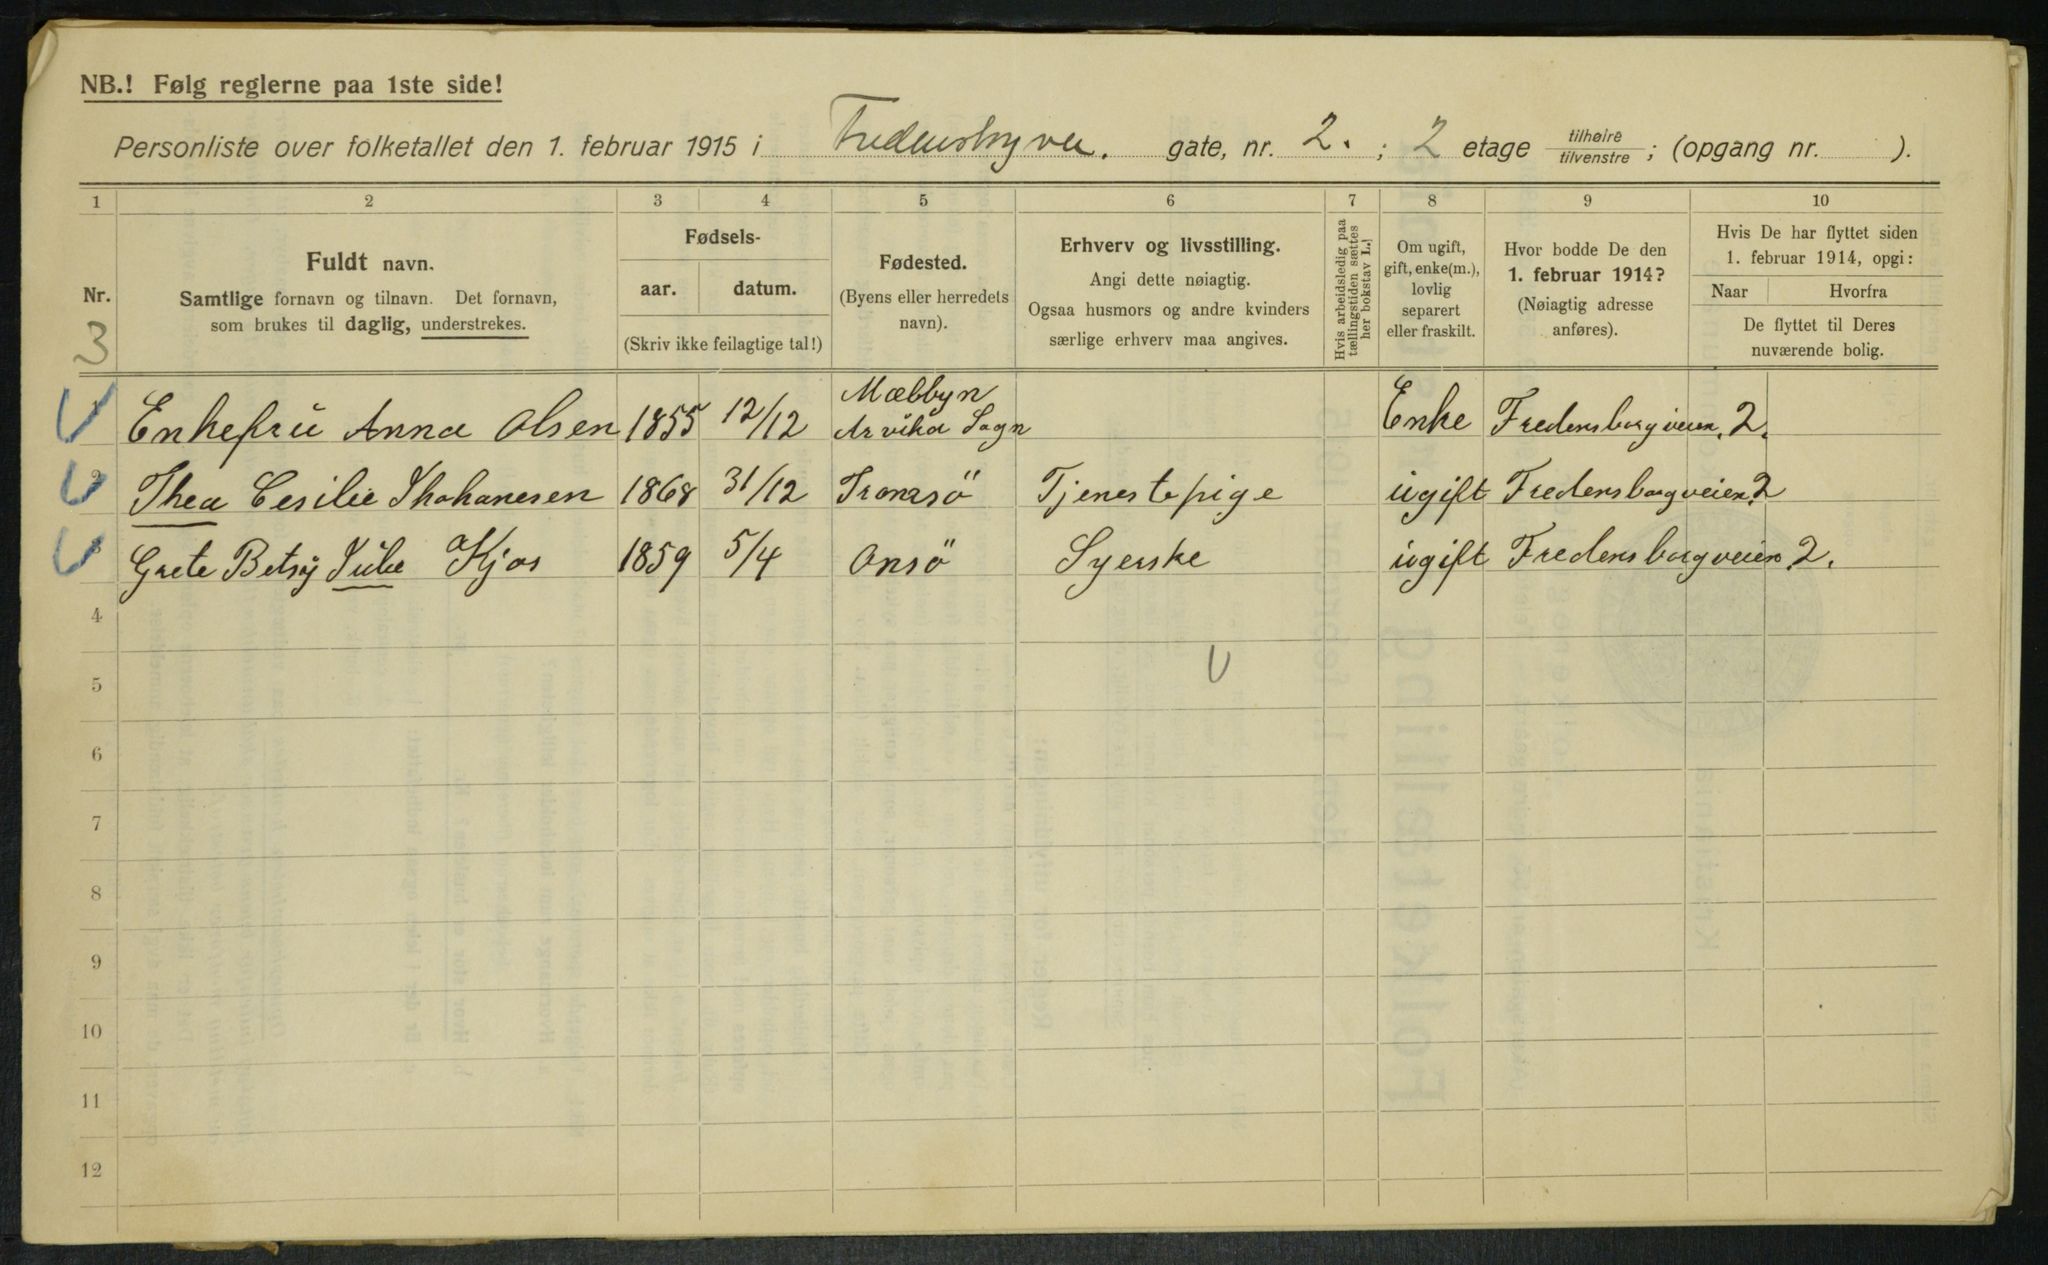 NB.! Følg reglerne paa 1ste side!
Personliste over folketallet den 1. februar 1915 i gate, nr. 2. ; 2 etage tilhøire tilvenstre ; (opgang nr. ).
1 2 3 4 5 6 7 8 9 10
Nr.
3
Fuldt navn.
Samtlige fornavn og tilnavn. Det fornavn,
som brukes til daglig, understrekes.
Fødsels-
aar. datum.
(Skriv ikke feilagtige tal!)
Fødested.
(Byens eller herredets
navn).
Erhverv og livsstilling.
Angi dette nøiagtig.
Ogsaa husmors og andre kvinders
særlige erhverv maa angives.
Hvis arbeidsledig paa
tællingstiden sættes
her bokstav L.]
Om ugift,
gift, enke(m.),
lovlig
separert
eller fraskilt.
Hvor bodde De den
1. februar 1914?
(Nøiagtig adresse
anføres).
Hvis De har flyttet siden
1. februar 1914, opgi:
Naar Hvorfra
De flyttet til Deres
nuværende bolig.
1 Enkefrü Anna Olsen 1855 12/12 Mæbbyn Arvika Sogn Enke Fredensborgveien. 2.
2 Thea Cesilie Ihohanesen 1868 31/12 Tromsö Tjenestepige ügift Fredensborgveien 2
3 Grete Betsÿ Julie Kjos 1859 5/4 Onsö Syerske ügift Fredensborgveien 2.
4
5
6
7
8
9
10
11
12